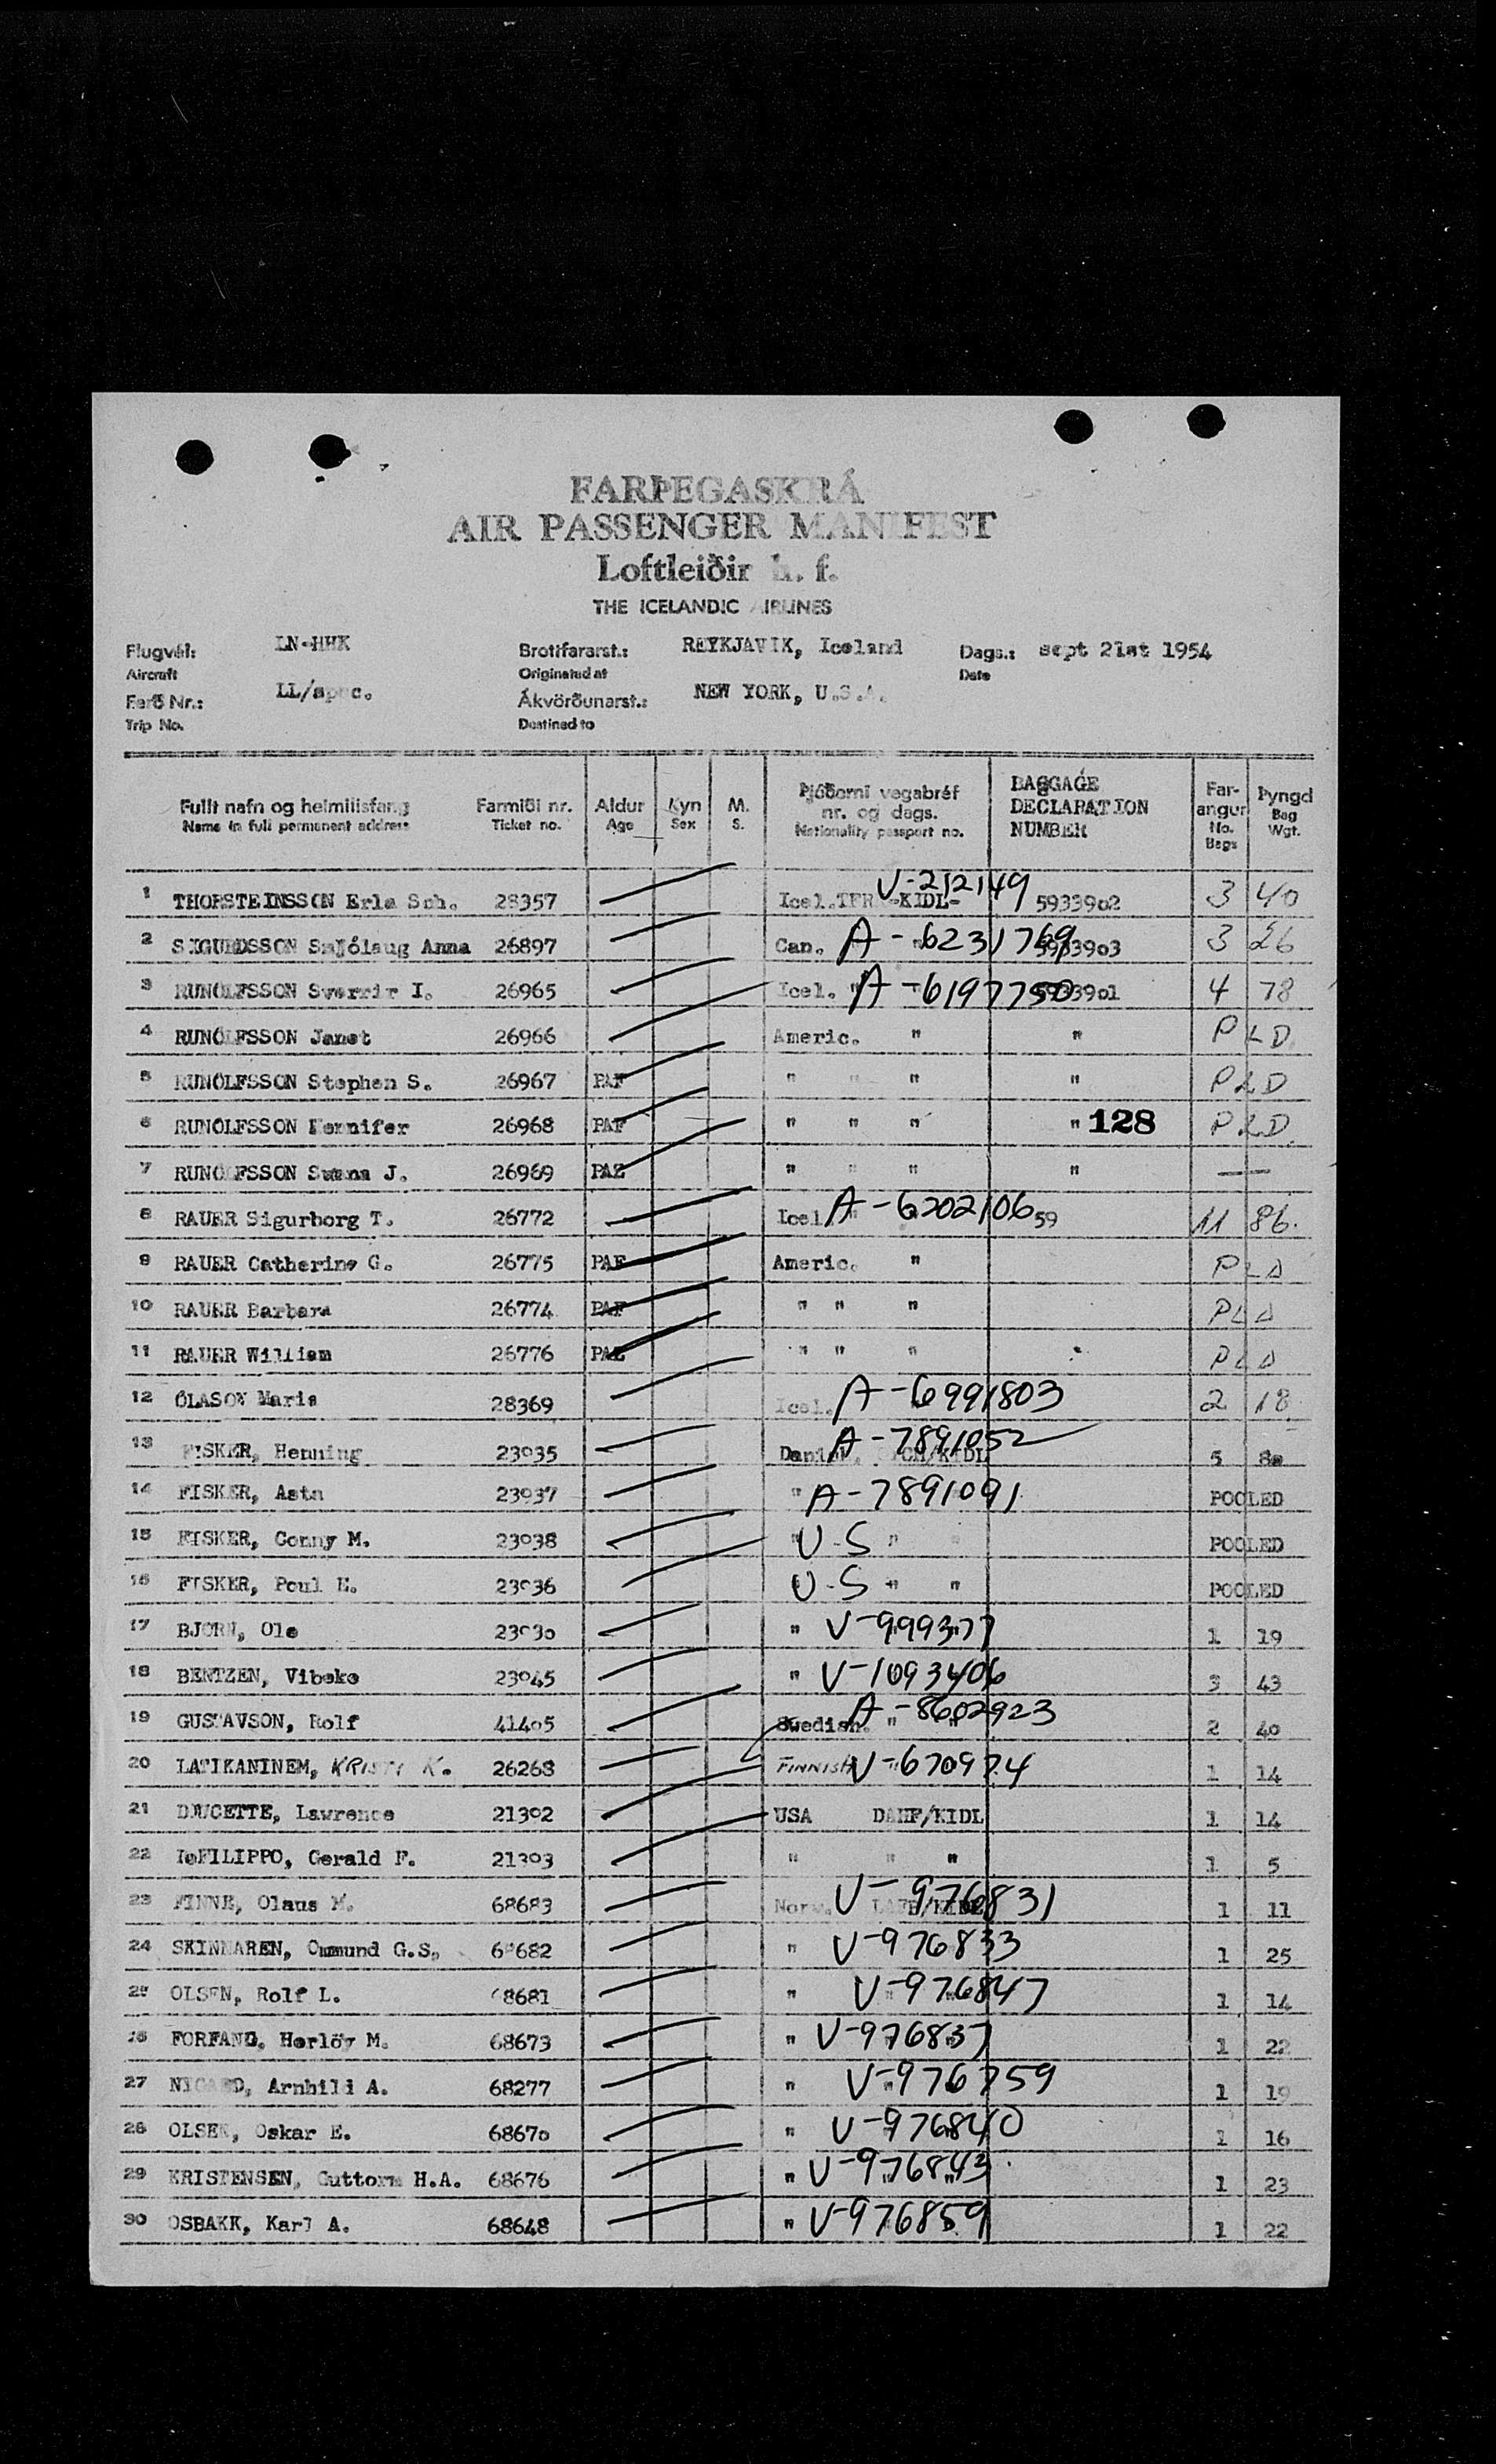 FARÞEGASKRÁ
AIR PASSENGER MANIFEST
Loftleiðir h. f.
THE ICELANDIC AIRLINES
Flugvél: LN-HHK Brottfararst.: REYKJAVIK, Iceland Dags.: sept 21st 1954
Aircraft Originated at Date
Ferð Nr.: LL/spec. Ákvörðunarst.: NEW YORK, U.S.A.
Trip No. Destined to
Fullt nafn og heimilisfang Farmiði nr. Aldur Kyn M. Þjóðerni vegabréf nr. og dags. BAGGAGE DECLARATION NUMBER Far-angur Þyngd
Name in full permanent address Ticket no. Age Sex S. Nationality passport no. No. Bags Bag Wgt.
1 THORSTEINSSON Erla Sch. 28357 Icel. TFR -KIDL- V-212149 5933902 3 40
2 SIGURDSSON Anna 26897 Can. A-6231769 3 26
3 RUNOLFSSON Sverrir I. 26965 Icel. " A-6197750 4 78
4 RUNOLFSSON Janet 26966 Americ. " " PLD
5 RUNOLFSSON Stephen S. 26967 PAF " " " " PLD
6 RUNOLFSSON 26968 PAF " " " " 128 PLD
7 RUNOLFSSON J. 26969 PAZ " " " " —
8 RAUER Sigurborg T. 26772 Icel " A-6202106 59 11 86.
9 RAUER Catherine G. 26775 PAF Americ. " PLD
10 RAUER Barbara 26774 PAF " " " PLD
11 RAUER William 26776 PAZ " " " PLD
12 ÓLASON Maria 28369 Icel. A-6991803 2 18
13 FISKER, Henning 23035 Danish. A-7891052 5 80
14 FISKER, Asta 23037 " A-7891091 POOLED
15 FISKER, Conny M. 23038 U-S " " POOLED
16 FISKER, Poul E. 23036 U-S " " POOLED
17 BJORN, Ole 23030 " V-999377 1 19
18 BENTZEN, Vibeke 23045 " V-1093406 3 43
19 GUSTAVSON, Rolf 41405 Swedish. " " A-8602923 2 40
20 LATIKANINEM, KRISTI K. 26268 FINNISH V-670974 1 14
21 DOUCETTE, Lawrence 21302 USA DAHF/KIDL 1 14
22 DeFILIPPO, Gerald F. 21303 " " " 1 5
23 FINNE, Olaus M. 68683 Norw. V-976831 1 11
24 SKINNAREN, G.S. 68682 " V-976833 1 25
25 OLSEN, Rolf L. 68681 " V-976847 1 14
26 FORFANG, Herlöv M. 68673 " V-976837 1 22
27 NIGARD, Arnhild A. 68277 " V-976759 1 19
28 OLSEN, Oskar E. 68670 " V-976840 1 16
29 KRISTENSEN, Guttorm H.A. 68676 " V-976843 1 23
30 OSBAKK, Karl A. 68648 " V-976859 1 22